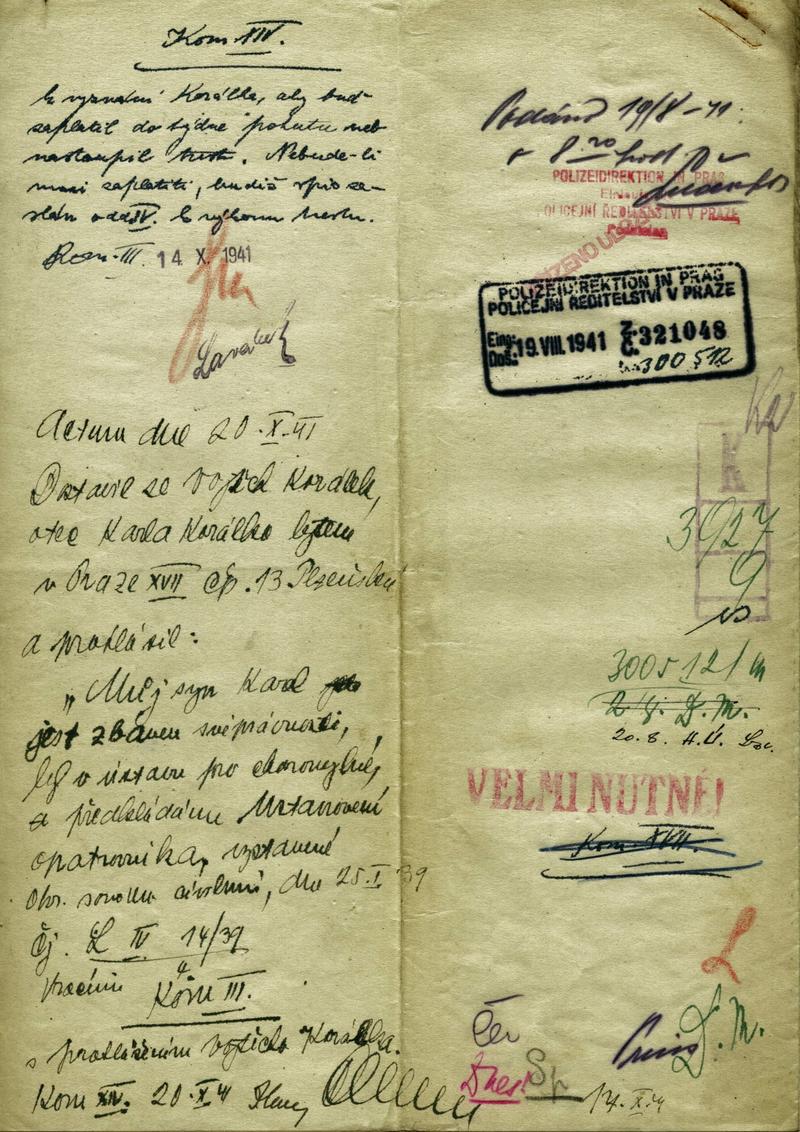 Kom. XIV.
k vyznání Korálka, aby buď
zaplatil do týdne pokutu neb
nastoupil trest. Nebude-li
moci zaplatiti, budiž spis za-
slán odd. IV. k výkonu trestu.
Kom. III. 14 X. 1941
Actum dne 20.X.41
Dostavil se Vojtěch Korálek,
otec Karla Korálka bytem
v Praze XVII čp. 13 Plzeňská
a prohlásil:
„Můj syn Karel
jest zbaven svéprávnosti,
byl v ústavu pro choromyslné,
a předkládám Ustanovení
opatrovníka, vystavené
Okr. soudem civilním, dne 25.I 39
Čj. L IV 14/39
4
Vracím Kom III.
s prohlášením Vojtěcha Korálka.
Kom XIV. 20.X 41
Podáno 19/8-41.
v 8 20 hod.
POLIZEIDIREKTION IN PRAG
POLICEJNÍ ŘEDITELSTVÍ V PRAZE
POLIZEIDIREKTION IN PRAG
POLICEJNÍ ŘEDITELSTVÍ V PRAZE
Eing.
Doš. 19. VIII. 1941 Z. Č. 321048
300 512
K
3927
9
300512/41
20.8.
VELMI NUTNÉ!
Kom XVII.
L
D. M.
Čer
Dnes!
Sp
14.X.41